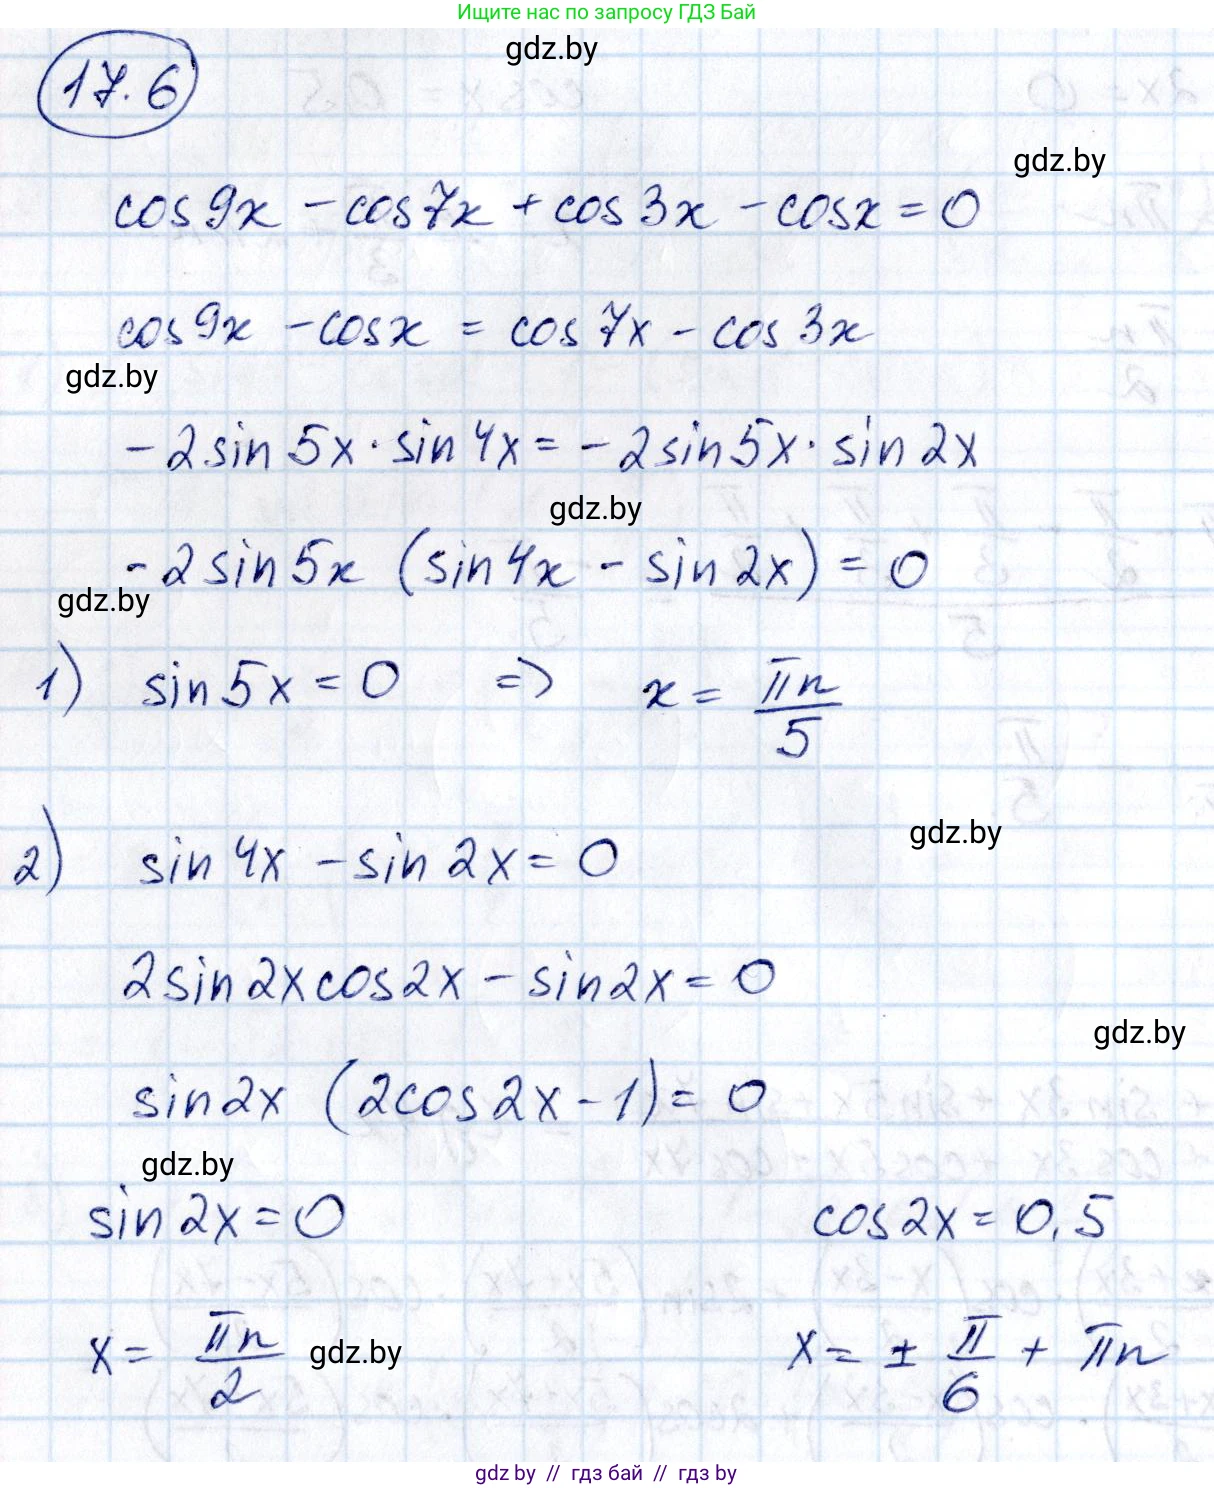 Ищите нас по запросу ГДЗ Бай
gdz.by
17.6
gdz.by
cos9x - cos7x + cos3x - cosx = 0
cos9x - cosx = cos7x - cos3x
gdz.by
-2sin5x · sin4x = -2sin5x · sin2x
gdz.by
-2sin5x (sin4x - sin2x) = 0
gdz.by
1) sin5x = 0 => x = πn/5
gdz.by
2) sin4x - sin2x = 0
2sin2xcos2x - sin2x = 0
gdz.by
sin2x (2cos2x - 1) = 0
gdz.by
sin2x = 0 cos2x = 0,5
x = πn/2 gdz.by x = ± π/6 + πn
gdz by // гдз бай // гдз by